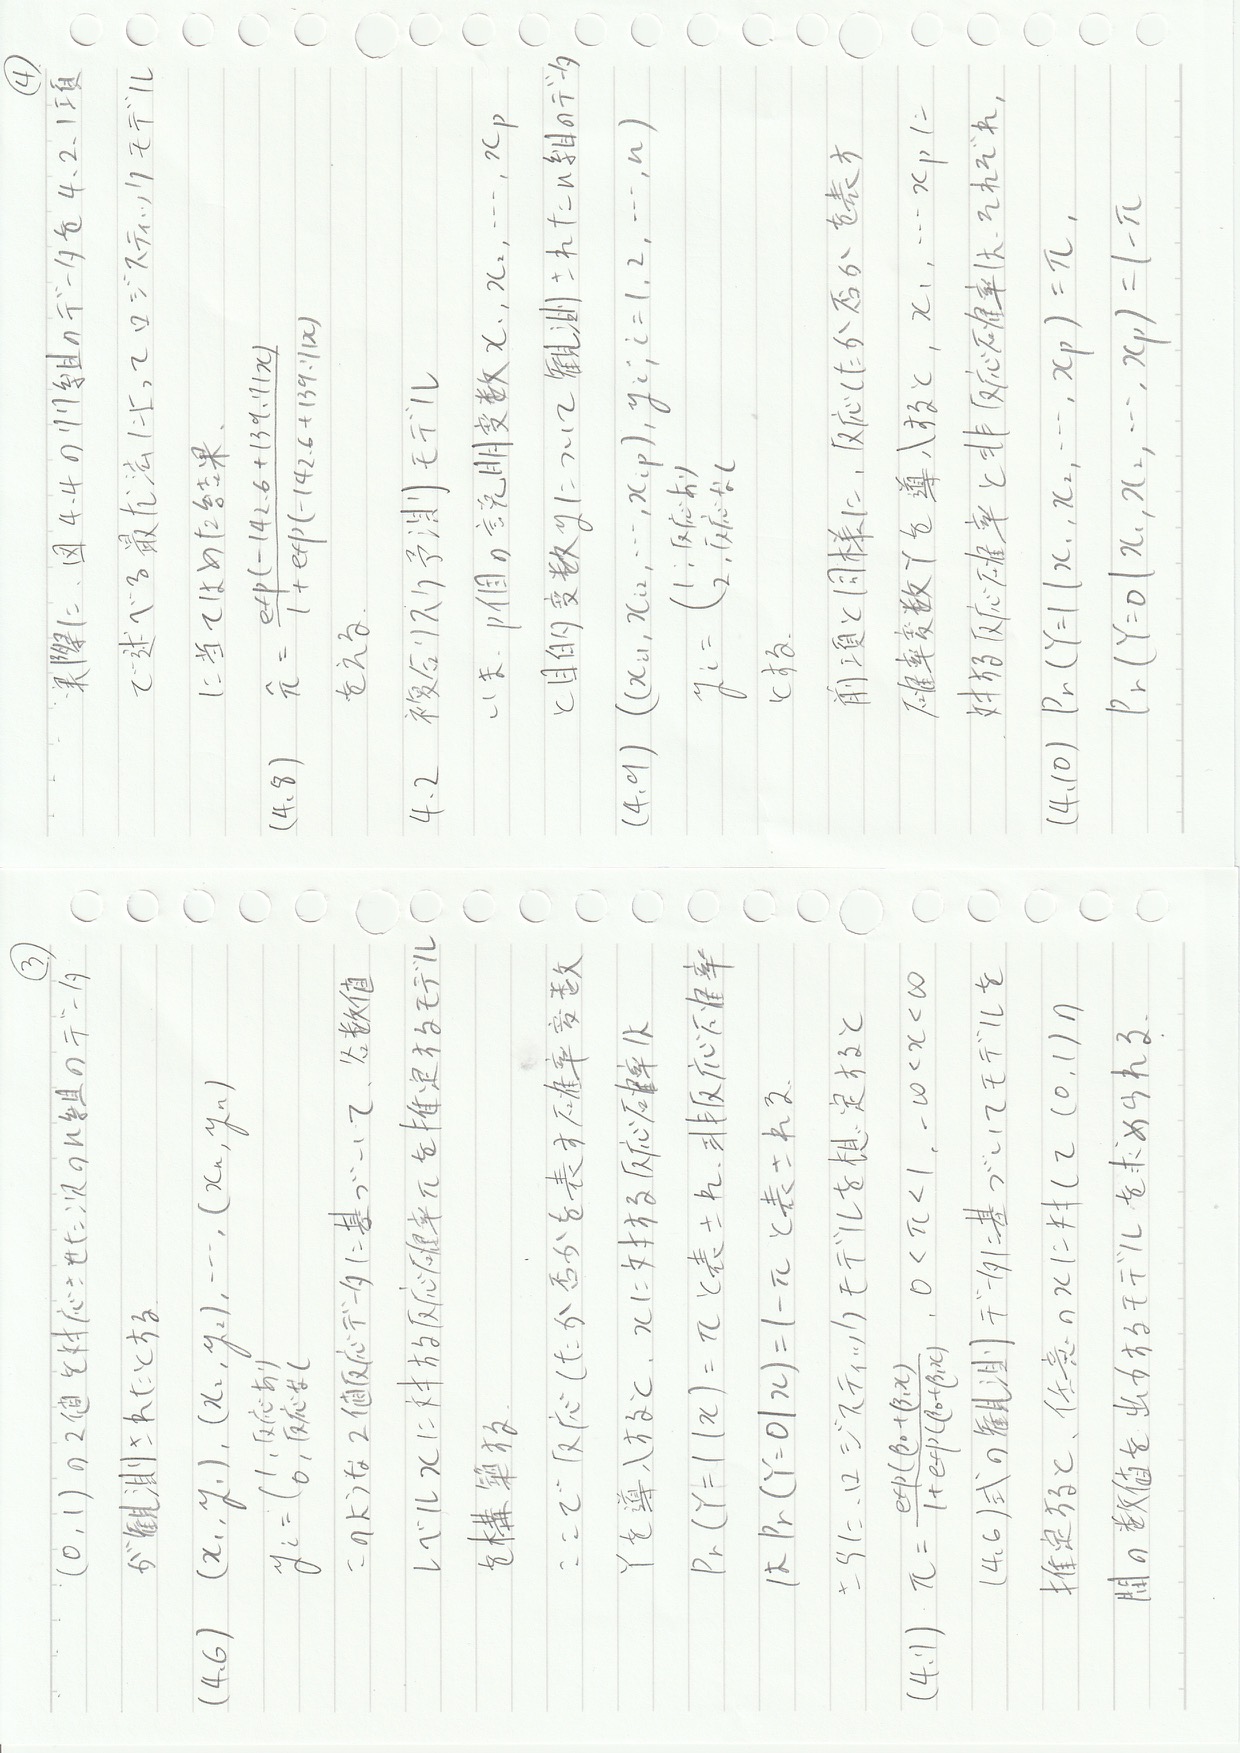 ③
(0,1)の2値を対応させた次のn組のデータ
が観測されたとする.
(4.6) (x₁,y₁),(x₂,y₂),…,(xₙ,yₙ)
yᵢ=(1,反応あり
0,反応なし
このような2値反応データに基づいて、各数値
レベルxに対する反応確率πを推定するモデル
を構築する.
ここで反応したか否かを表す確率変数
Yを導入すると、xに対する反応確率は
Pr(Y=1|x)=πと表され、非反応確率
はPr(Y=0|x)=1-πと表される.
さらに、ロジスティックモデルを想定すると
(4.7) π=exp(β₀+β₁x)/1+exp(β₀+β₁x), 0<π<1, -∞<x<∞
(4.6)式の観測データに基づいてモデルを
推定すると、任意のxに対して(0,1)の
間の数値を出力するモデルを求められる.
④
実際に、図4.4の77組のデータを4.2.1項
で述べる最尤法によってロジスティックモデル
に当てはめた結果、
(4.8) π̂=exp(-142.6+139.71x)/1+exp(-142.6+139.71x)
をえる.
4.2 複合リスク予測モデル
いま、p個の説明変数x₁,x₂,…,xₚ
と目的変数yについて観測されたn組のデータ
(4.9) ((xᵢ₁,xᵢ₂,…,xᵢₚ),yᵢ; i=1,2,…,n)
yᵢ=(1;反応あり
2,反応なし
とする.
前項と同様に、反応したか否かを表す
確率変数Yを導入すると, x₁,…xₚに
対する反応確率と非反応確率は、それぞれ,
(4.10) Pr(Y=1|x₁,x₂,…,xₚ)=π,
Pr(Y=0|x₁,x₂,…,xₚ)=1-π